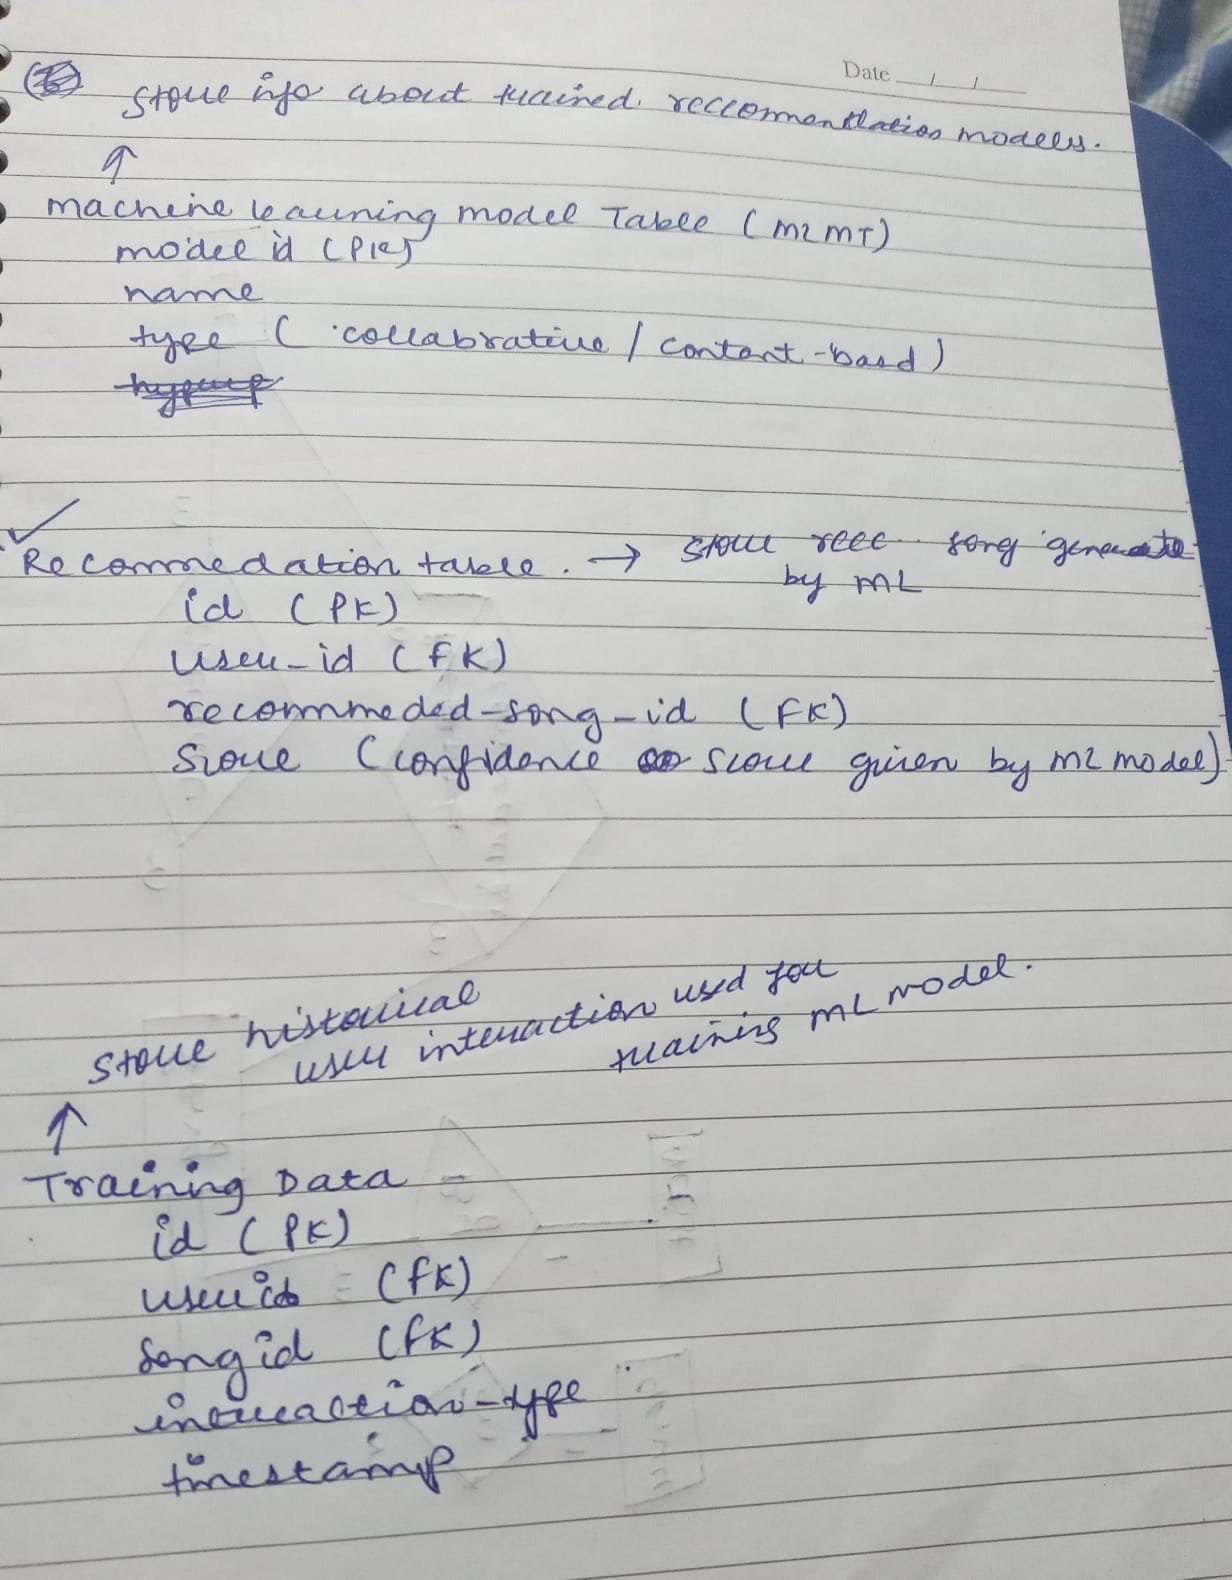 Date / /
Store info about trained. reccommendation models.
↑
machine learning model Table (MLMT)
model id (PK)
name
type ( collabrative / content-basd )
Recommedation table. → store recc.. song generate
by ML
id (PK)
user-id (FK)
recommeded-song-id (FK)
Score (confidence score given by ML model)
Store historical
user interaction used for
training ML model.
↑
Training Data
id (PK)
user id (FK)
Song id (FK)
interaction-type
timestamp